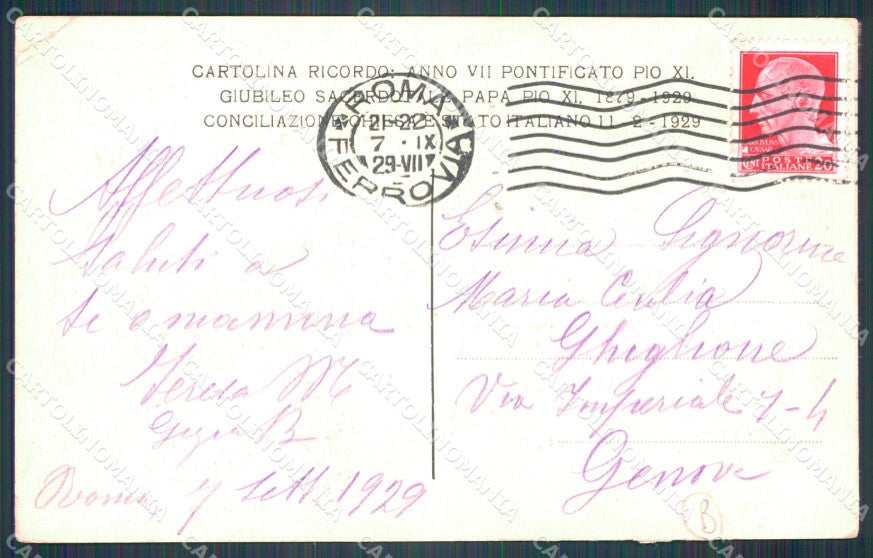 CARTOLINA RICORDO: ANNO VII PONTIFICATO PIO XI.
GIUBILEO SACERDOTALE PAPA PIO XI. 1879-1929
CONCILIAZIONE CHIESA E STATO ITALIANO 11-2-1929
ROMA
21-22
7 · IX
29-VII
FERROVIA
POSTE
ITALIANE 20
Affettuosi
saluti a
te e mamma
Teresa M
Roma, 7 Sett 1929
Signorina
Maria
Ghiglione
Via Imperiale 7-4
Genova
B
CARTOLINOMANIA